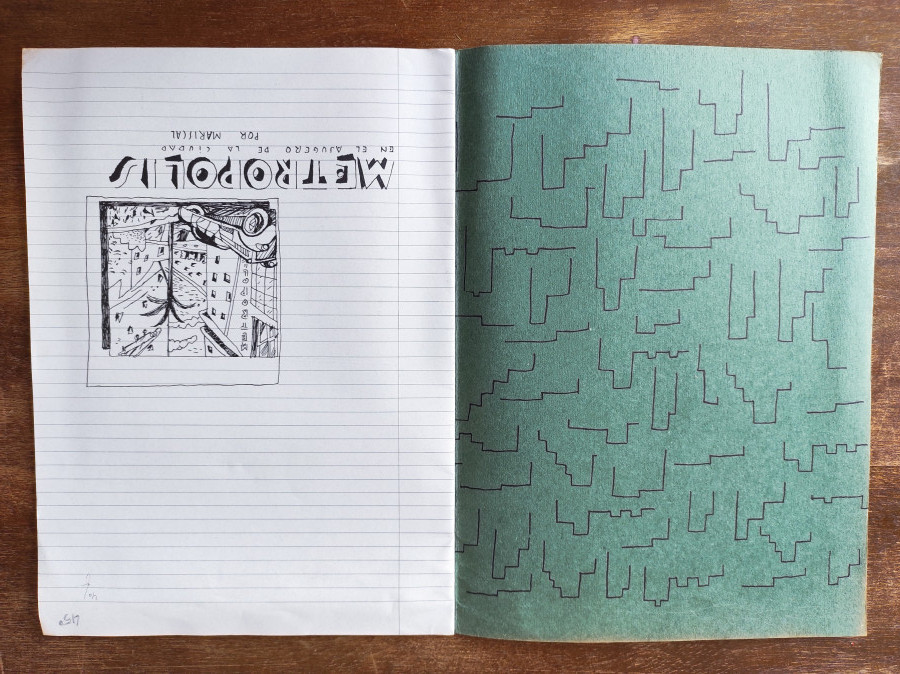 METROPOLIS
EN EL AJUGERO DE LA CIUDAD
POR MARISCAL